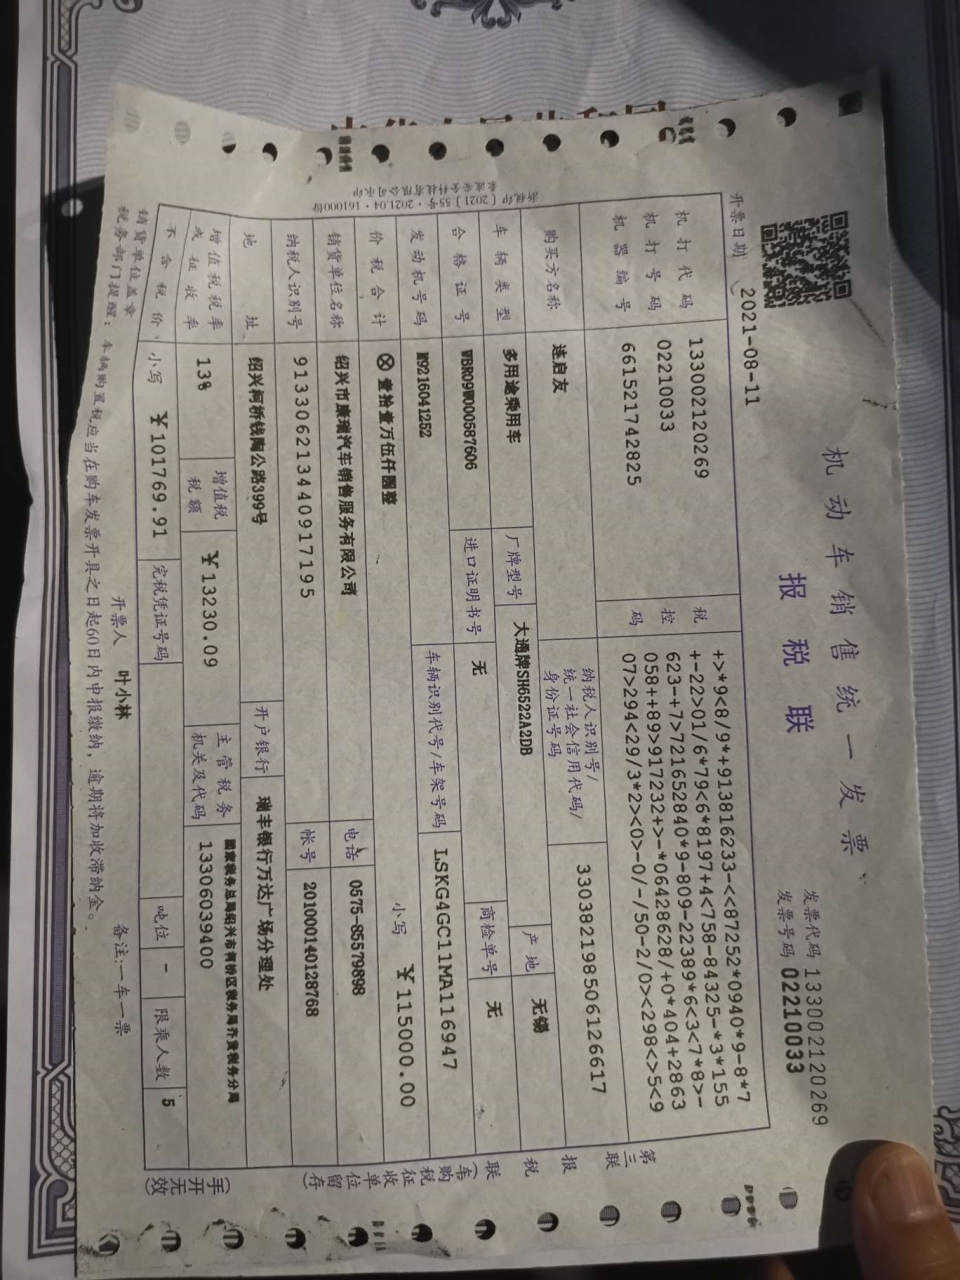 机动车销售统一发票
报税联
发票代码 133002120269
发票号码 02210033
开票日期 2021-08-11
机打代码 133002120269
机打号码 02210033
机器编号 661521742825
税控码
+>*9<8/9*+91381623​3-<<87252*0940*9-8*7
+-22>01/6*79<6*8197+4<758-84325-*3*155
623-+7>721652840*9-809-22389*6<3<7*8>-
058++89>917232+>-*06428628/+0*404+2863
07>294<29/3*2><0>-0/-/50-2/0><298<>5<9
购买方名称 连启友
纳税人识别号/
统一社会信用代码/
身份证号码
330382198506126617
车辆类型 多用途乘用车 厂牌型号 大通牌SH6522A2DB 产地 无锡
合格证号 WBR09W000587606 进口证明书号 无 商检单号 无
发动机号码 M9216041252 车辆识别代号/车架号码 LSKG4GC11MA116947
价税合计 ⊗壹拾壹万伍仟圆整 小写 ¥115000.00
销货单位名称 绍兴市康瑞汽车销售服务有限公司 电话 0575-85579898
纳税人识别号 913306213440917195 帐号 201000140128768
地址 绍兴柯桥钱陶公路399号 开户银行 瑞丰银行万达广场分理处
增值税税率
或征收率
13% 增值税
税额
¥13230.09 主管税务
机关及代码
国家税务总局绍兴市柯桥区税务局齐贤税务分局
13306039400
不含税价 小写 ¥101769.91 完税凭证号码 吨位 - 限乘人数 5
销货单位盖章 开票人 叶小林 备注:一车一票
税务部门提醒：车辆购置税应当在购车发票开具之日起60日内申报缴纳，逾期将加收滞纳金。
第三联 报税联(车购税征收单位留存)
(手开无效)
浙税印〔2021〕55号·2021.04·161000份